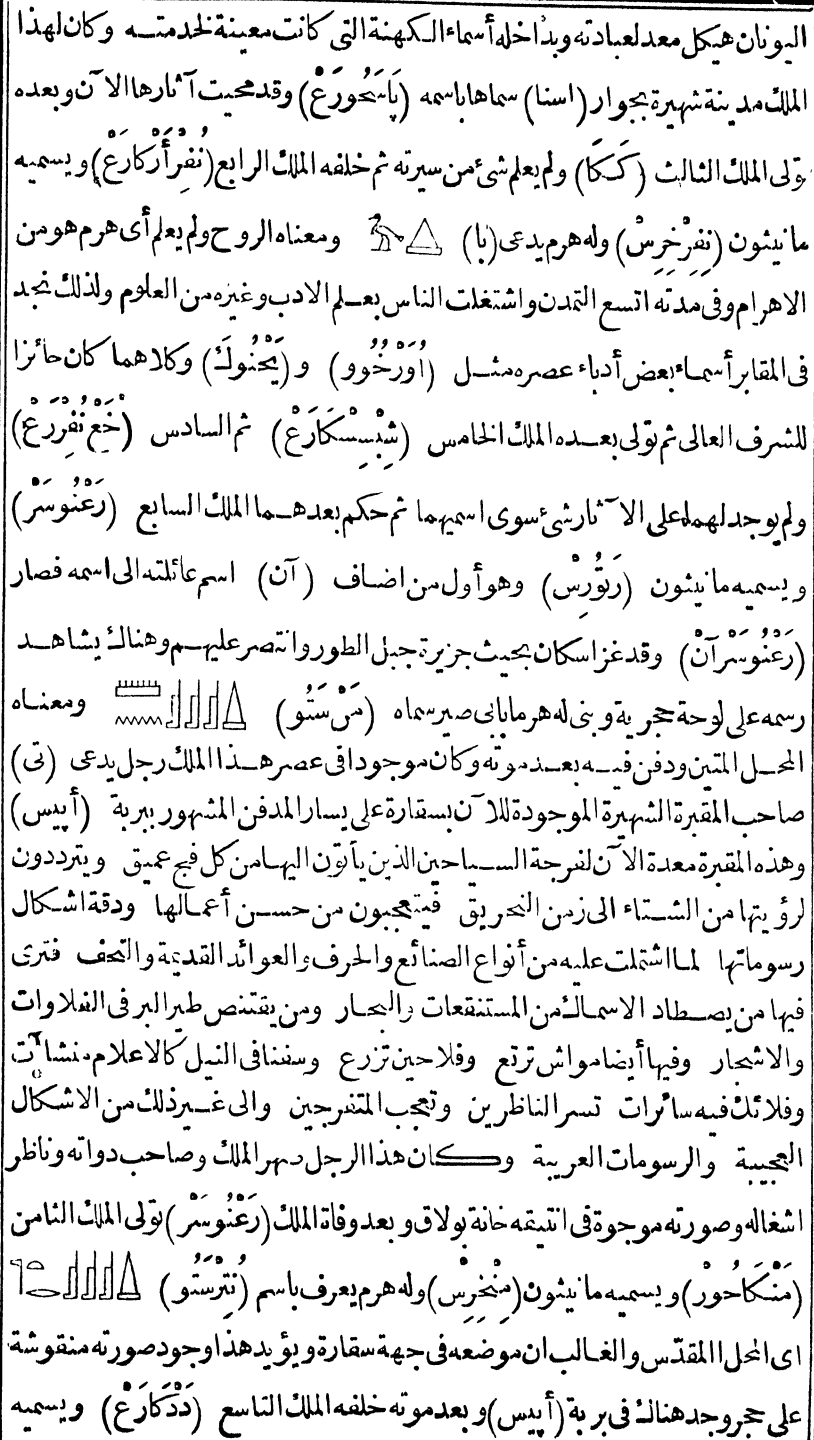 اليونان هيكل معد لعبادته وبداخله أسماء الكهنة التى كانت معينة لخدمته وكان لهذا
الملك مدينة شهيرة بجوار (اسنا) سماها باسمه (پَاسَحُورَعْ) وقد محيت آثارها الآن وبعده
تولى الملك الثالث (كَكَا) ولم يعلم شئ من سيرته ثم خلفه الملك الرابع (نُفُرْأَرْكَارَعْ) ويسميه
مانيثون (نِفِرْخِرِسْ) وله هرم يدعى (با) ومعناه الروح ولم يعلم أى هرم هو من
الاهرام وفى مدته اتسع التمدن واشتغلت الناس بعلم الادب وغيره من العلوم ولذلك نجد
فى المقابر أسماء بعض أدباء عصره مثل (اُورْخُوو) و (يَحْنُوكَ) وكلاهما كان حائزا
للشرف العالى ثم تولى بعده الملك الخامس (شِبْسِسْكَارَعْ) ثم السادس (خَعْ نُفِررَعْ)
ولم يوجد لهما على الآثار شئ سوى اسميهما ثم حكم بعدهما الملك السابع (رَعْنُوسَرْ)
ويسميه مانيثون (رَتُورِسْ) وهو أول من اضاف (آن) اسم عائلته الى اسمه فصار
(رَعْنُوسَرْآنْ) وقد غزا سكان بحيث جزيرة جبل الطور وانتصر عليهم وهناك يشاهد
رسمه على لوحة حجرية وبنى له هرما بابى صير سماه (مَنْ سَتُو) ومعناه
المحل المتين ودفن فيه بعد موته وكان موجودا فى عصر هذا الملك رجل يدعى (تى)
صاحب المقبرة الشهيرة الموجودة للآن بسقارة على يسار المدفن المشهور ببربة (أپيس)
وهذه المقبرة معدة الآن لفرجة السياحين الذين يأتون اليها من كل فج عميق ويترددون
لرؤيتها من الشتاء الى زمن التحريق فيتعجبون من حسن أعمالها ودقة اشكال
رسوماتها لما اشتملت عليه من أنواع الصنائع والحرف والعوائد القديمة والتحف فترى
فيها من يصطاد الاسماك من المستنقعات والبحار ومن يقتنص طير البر فى الفلاوات
والاشجار وفيها أيضا مواش ترتع وفلاحين تزرع وسفنا فى النيل كالاعلام منشآت
وفلائك فيه سائرات تسر الناظرين وتعجب المتفرجين والى غير ذلك من الاشكال
العجيبة والرسومات الغريبة وكان هذا الرجل صهر الملك وصاحب دواته وناظر
اشغاله وصورته موجوة فى انتيقه خانة بولاق وبعد وفاة الملك (رَعْنُوسَرْ) تولى الملك الثامن
(مَنْكَاحُورْ) ويسميه مانيثون (مِنْخِرِسْ) وله هرم يعرف باسم (نُتِرْسَتُو)
اى المحل المقدّس والغالب ان موضعه فى جهة سقارة ويؤيد هذا وجود صورته منقوشة
على حجر وجد هناك فى بربة (أپيس) وبعد موته خلفه الملك التاسع (دَدْكَارَعْ) ويسميه